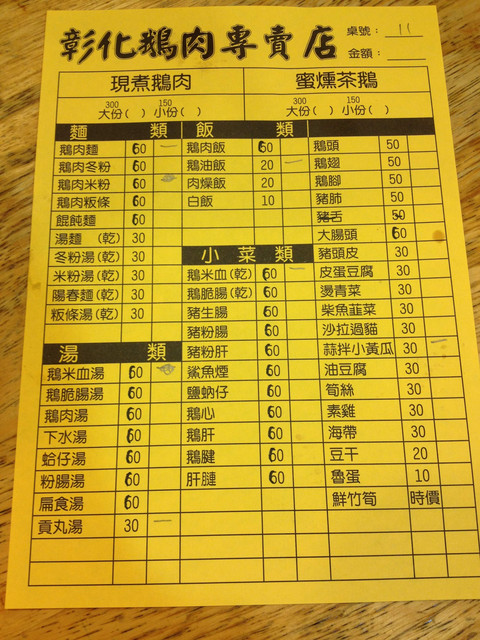 彰化鵝肉專賣店
桌號：11
金額：
現煮鵝肉 蜜燻茶鵝
300 150 300 150
大份( ) 小份( ) 大份( ) 小份( )
麵 類
鵝肉麵 60 一
鵝肉冬粉 60
鵝肉米粉 60
鵝肉粄條 60
餛飩麵 60
湯麵 (乾) 30
冬粉湯(乾) 30
米粉湯(乾) 30
陽春麵(乾) 30
粄條湯(乾) 30
湯 類
鵝米血湯 60
鵝脆腸湯 60
鵝肉湯 60
下水湯 60
蛤仔湯 60
粉腸湯 60
扁食湯 60
貢丸湯 30 一
飯 類
鵝肉飯 60
鵝油飯 20 一
肉燥飯 20
白飯 10
小菜類
鵝米血(乾) 60 一
鵝脆腸(乾) 60
豬生腸 60
豬粉腸 60
豬粉肝 60
鯊魚煙 60
鹽蚋仔 60
鵝心 60
鵝肝 60
鵝腱 60
肝腱 60
鵝頭 50
鵝翅 50
鵝腳 50
豬肺 50
豬舌 50
大腸頭 60
豬頭皮 30
皮蛋豆腐 30
燙青菜 30
柴魚韮菜 30
沙拉過貓 30
蒜拌小黃瓜 30 一
油豆腐 30
筍絲 30
素雞 30
海帶 30
豆干 20
魯蛋 10
鮮竹筍 時價